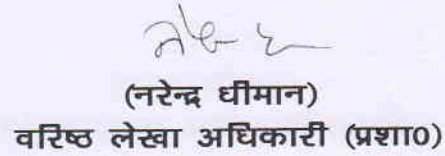 (नरेन्द्र धीमान)
वरिष्ठ लेखा अधिकारी (प्रशा0)